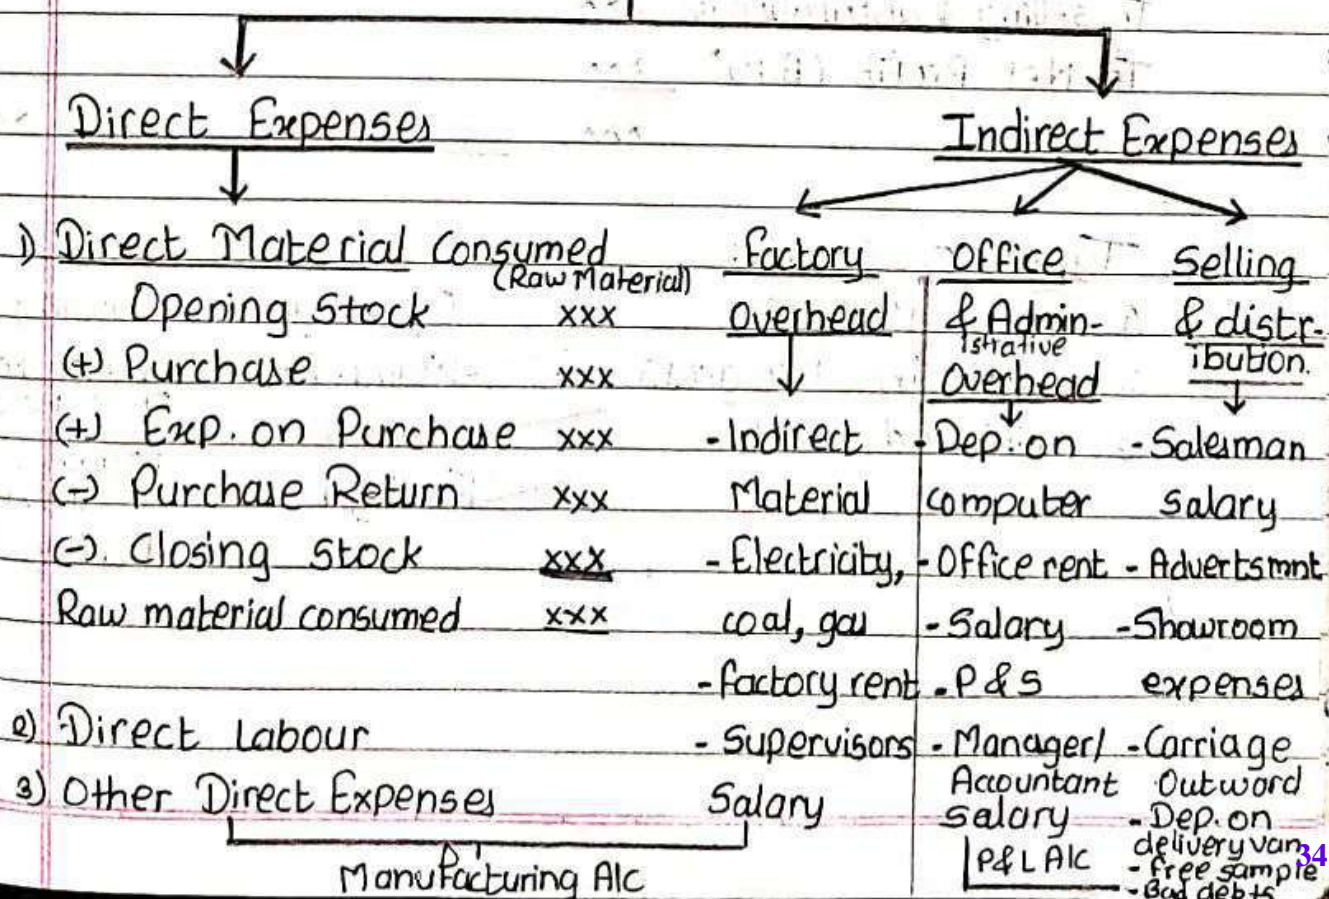 Direct Expenses
Indirect Expenses
1) Direct Material Consumed
(Raw Material)
Opening Stock xxx
(+) Purchase xxx
(+) Exp. on Purchase xxx
(-) Purchase Return xxx
(-). Closing Stock xxx
Raw material consumed xxx
2) Direct Labour
3) Other Direct Expenses
Factory
Overhead
- Indirect
Material
- Electricity,
coal, gas
- factory rent
- Supervisors
Salary
Manufacturing A/c
Office
& Admin-
istrative
Overhead
- Dep. on
computer
- Office rent
- Salary
- P & S
- Manager/
Accountant
Salary
P&L A/c
Selling
& distr-
ibution.
- Salesman
Salary
- Advertsmnt
- Showroom
expenses
- Carriage
Outword
- Dep. on
delivery van
- free sample
- Bad debts
34